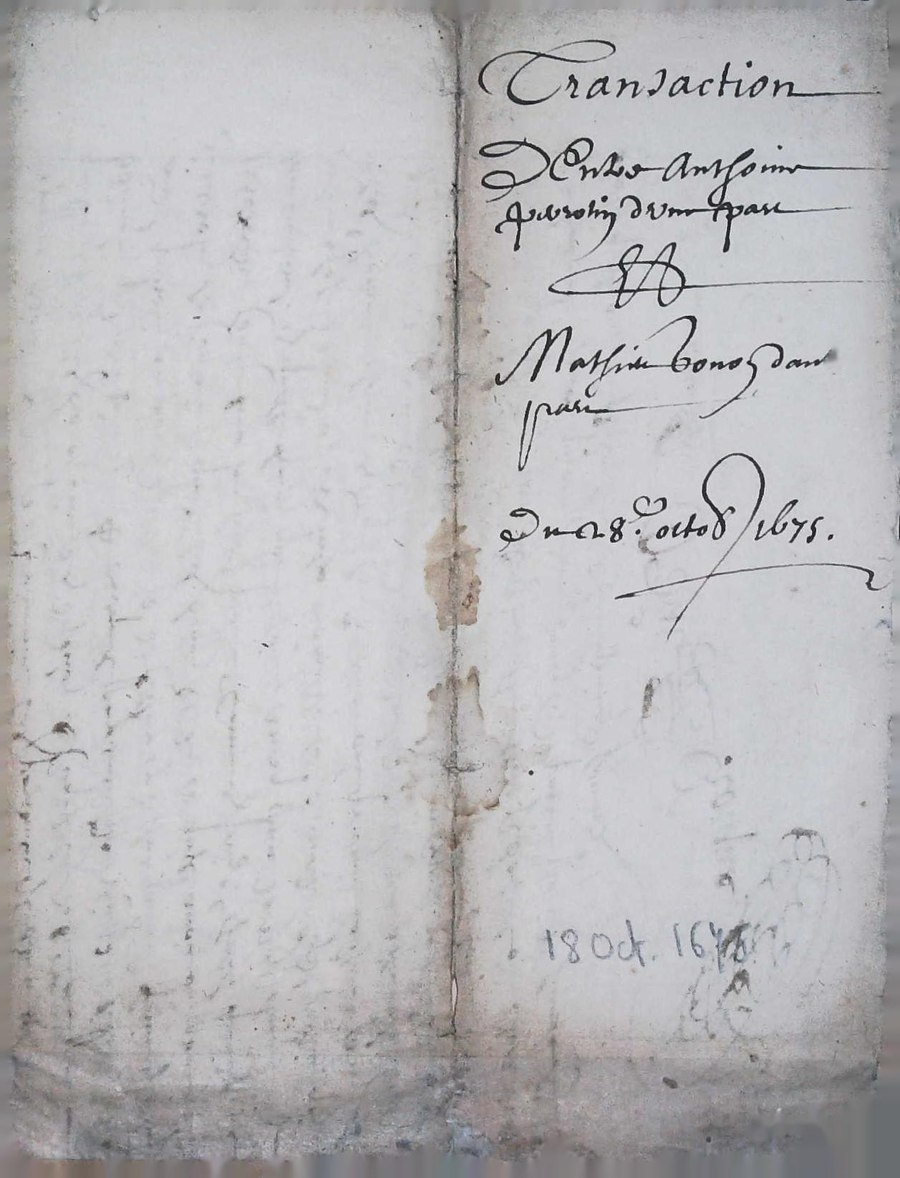 Transaction
D'Entre Anthoine
perrotin d'vne part
Et
Mathieu bonoy dau
part
Du 28.e octob 1675.
18 Oct. 1675